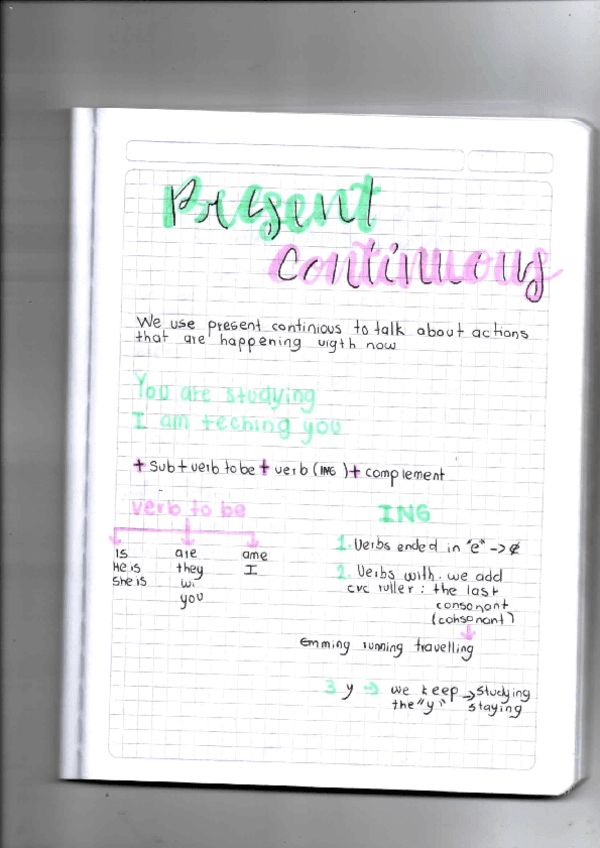 Present
continuous
We use present continious to talk about actions
that are happening rigth now
You are studying
I am teching you
+ Sub + verb to be + verb (ING) + complement
verb to be
is are ame
He is they I
She is we
you
ING
1. Verbs ended in "e" -> e
2. Verbs with. we add
cvc ruller: the last
consonant
(consonant)
running travelling
3 y → we keep → studying
the "y" staying